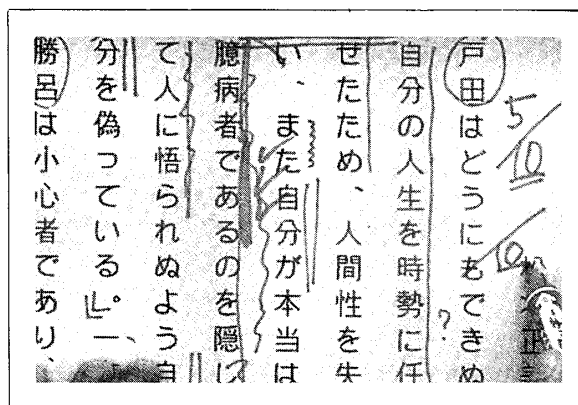 正
5/10
10
戸田はどうにもできぬ
自分の人生を時勢に任
?
せたため、人間性を失
い、また自分が本当は
臆病者であるのを隠し
て人に悟られぬよう自
分を偽っている」。一
勝呂は小心者であり、